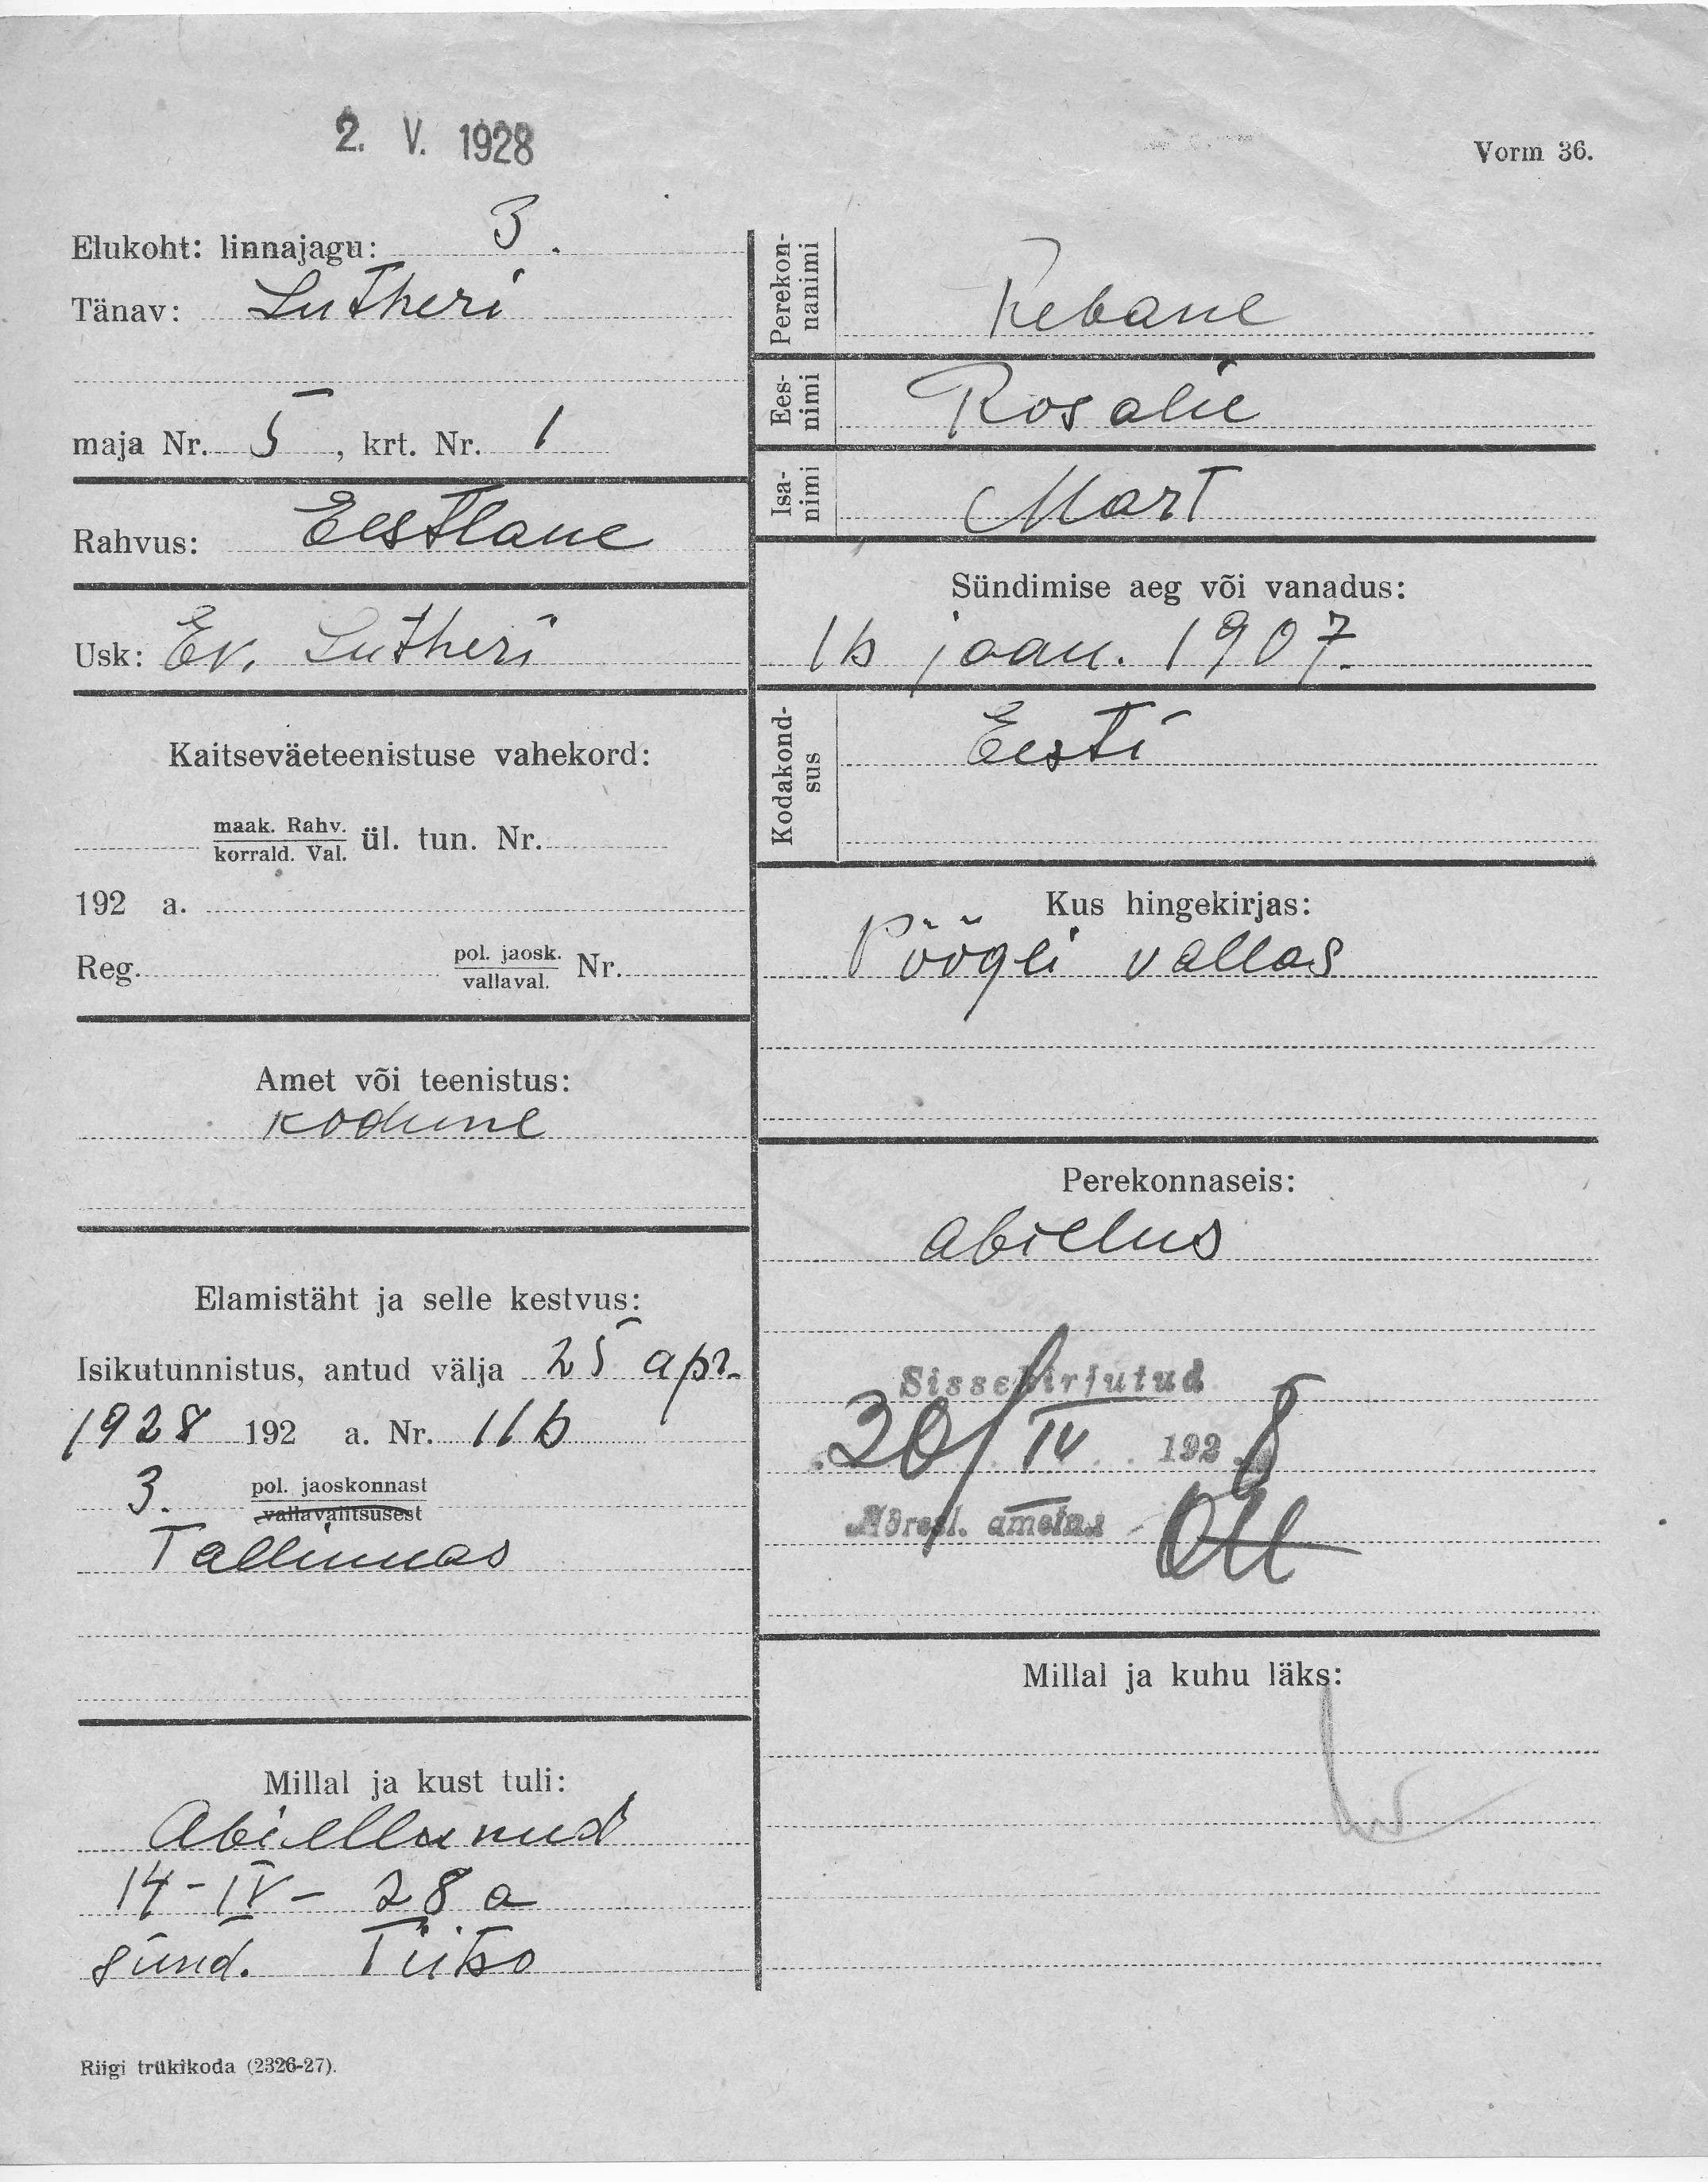 2. V. 1928
Vorm 36.
Elukoht: linnajagu: 3.
Tänav: Lutheri
maja Nr. 5, krt. Nr. 1
Rahvus: Eestlane
Usk: Ev. Lutheri
Kaitseväeteenistuse vahekord:
maak. Rahv.
korrald. Val. ül. tun. Nr.
192 a.
Reg. pol. jaosk.
vallaval. Nr.
Amet või teenistus:
kodune
Elamistäht ja selle kestvus:
Isikutunnistus, antud välja 25 apr.
1928 192 a. Nr. 116
3. pol. jaoskonnast
vallavalitsusest
Tallinnas
Millal ja kust tuli:
Abiellunud
14-IV-28 a
sünd. Tiitso
Riigi trükikoda (2326-27).
Perekon-
nanimi
Rebane
Ees-
nimi
Rosalie
Isa-
nimi
Mart
Sündimise aeg või vanadus:
16 jaan. 1907.
Kodakond-
sus
Eesti
Kus hingekirjas:
Pöögli vallas
Perekonnaseis:
abielus
Sissekirjutud
30/IV 1928
ametnik
Millal ja kuhu läks: